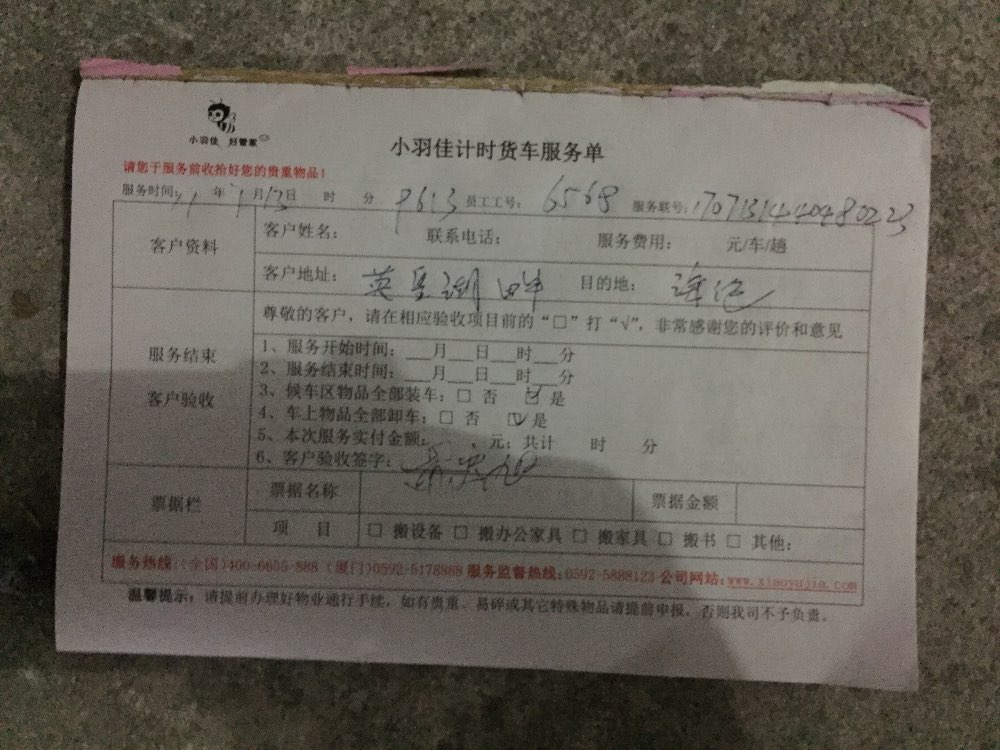 小羽佳 好管家
小羽佳计时货车服务单
请您于服务前收拾好您的贵重物品!
服务时间: 年 月13日 时 分 9613 员工工号: 6568 服务联号:
客户资料
客户姓名: 联系电话: 服务费用: 元/车/趟
客户地址: 英 湖畔 目的地:
尊敬的客户,请在相应验收项目前的“□”打“√”,非常感谢您的评价和意见
服务结束
客户验收
1、服务开始时间:___月___日___时___分
2、服务结束时间:___月___日___时___分
3、候车区物品全部装车:□ 否 ☑ 是
4、车上物品全部卸车:□ 否 ☑ 是
5、本次服务实付金额: 元;共计 时 分
6、客户验收签字:
票据栏
票据名称 票据金额
项 目 □ 搬设备 □ 搬办公家具 □ 搬家具 □ 搬书 □ 其他:
服务热线:(全国)400-6605-888 (厦门)0592-5178888 服务监督热线:0592-5888123 公司网站:www.xiaoyujia.com
温馨提示:请提前办理好物业通行手续,如有贵重、易碎或其它特殊物品请提前申报,否则我司不予负责。